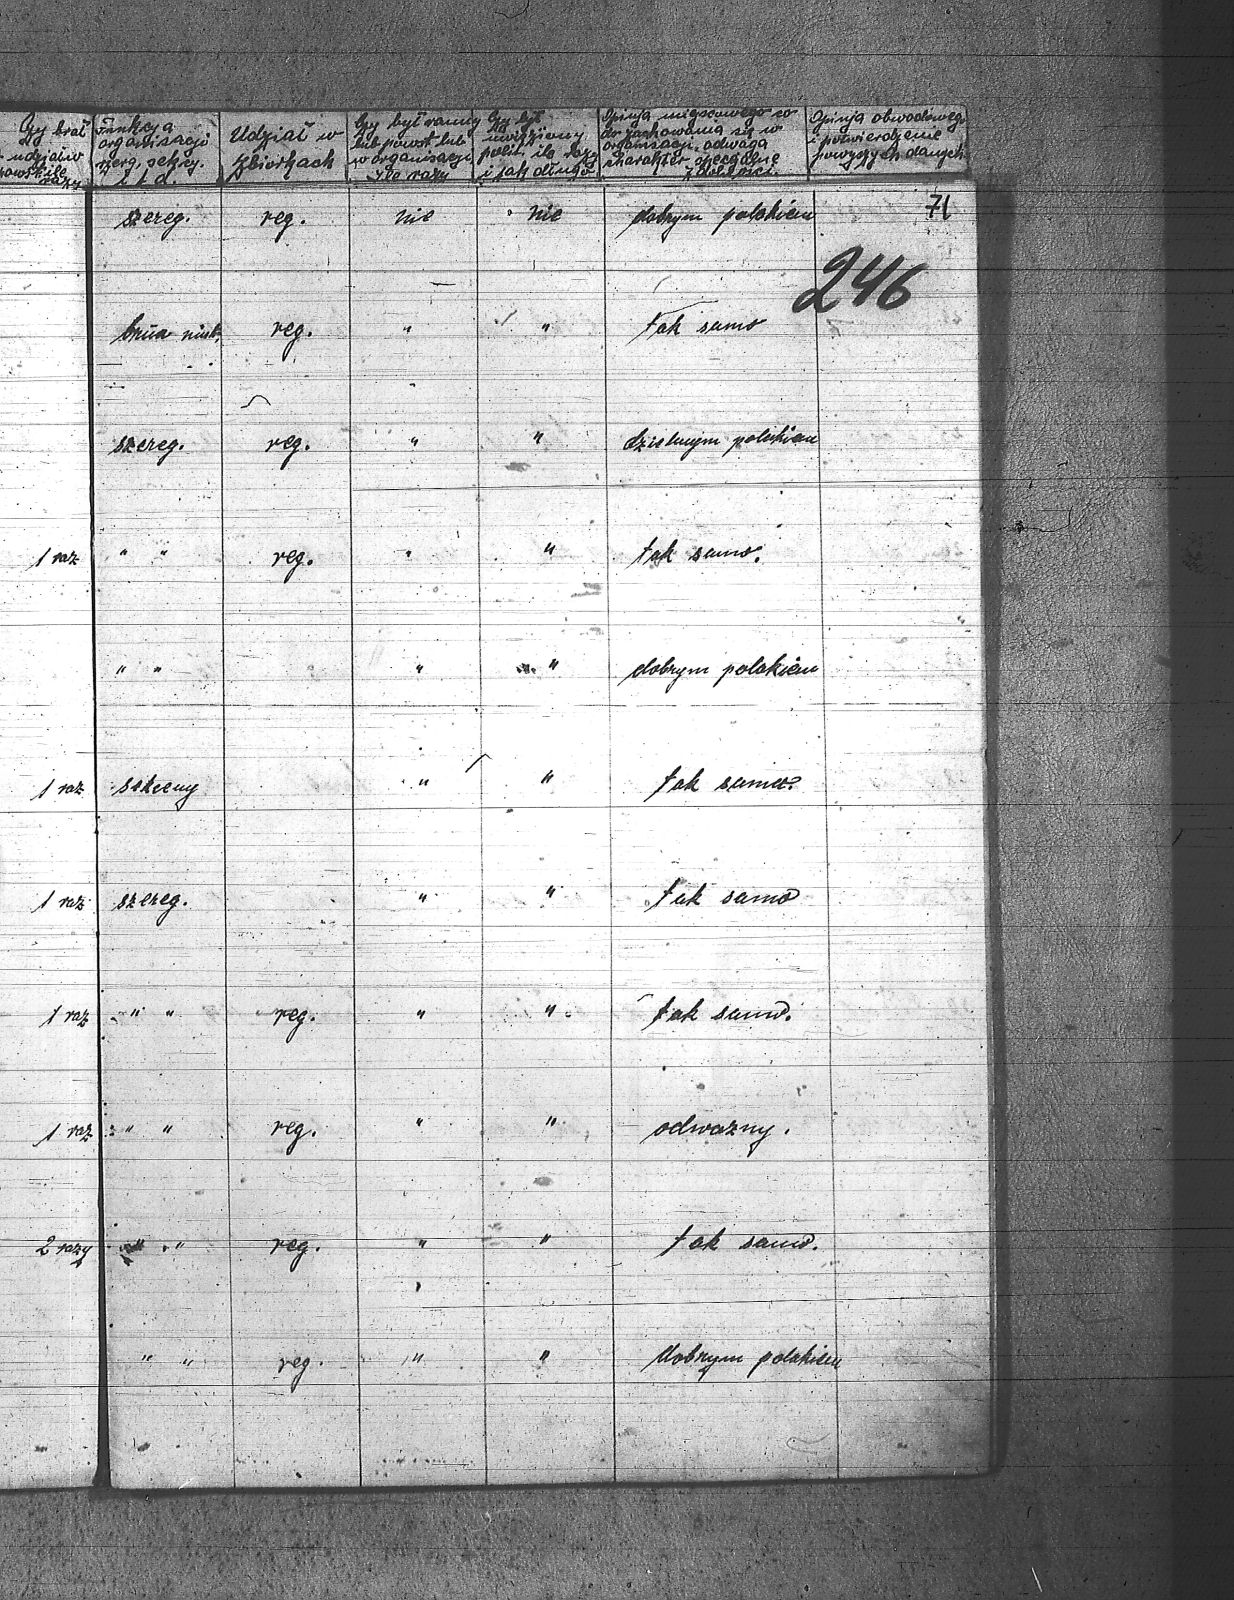 Czy brał udział w powst. ile razy
Funkcja organisacji szerg. sekcy. i t. d.
Udział w Zbiorkach
Czy był ranny lub powst lub w organisacji Ile razy
Czy był uwięziony polit. ile razy i jak długo
Opinja miejscowego co do zachowania się w organisacji, odwaga charakter specjalne zdolności.
Opinja obwodowego i potwierdzenie powyższych danych
71
szereg. reg. nie nie dobrym polakiem
246
reg. " " tak samo
szereg. reg. " " dzielnym polakiem
1 raz " " reg. " " tak samo.
" " " " dobrym polakiem
1 raz sekcyny " " tak samo.
1 raz szereg. " " tak samo
1 raz " " reg. " " tak samo.
1 raz " " reg. " " odwazny.
2 razy " " reg. " " tak samo.
" " reg. " " dobrym polakiem